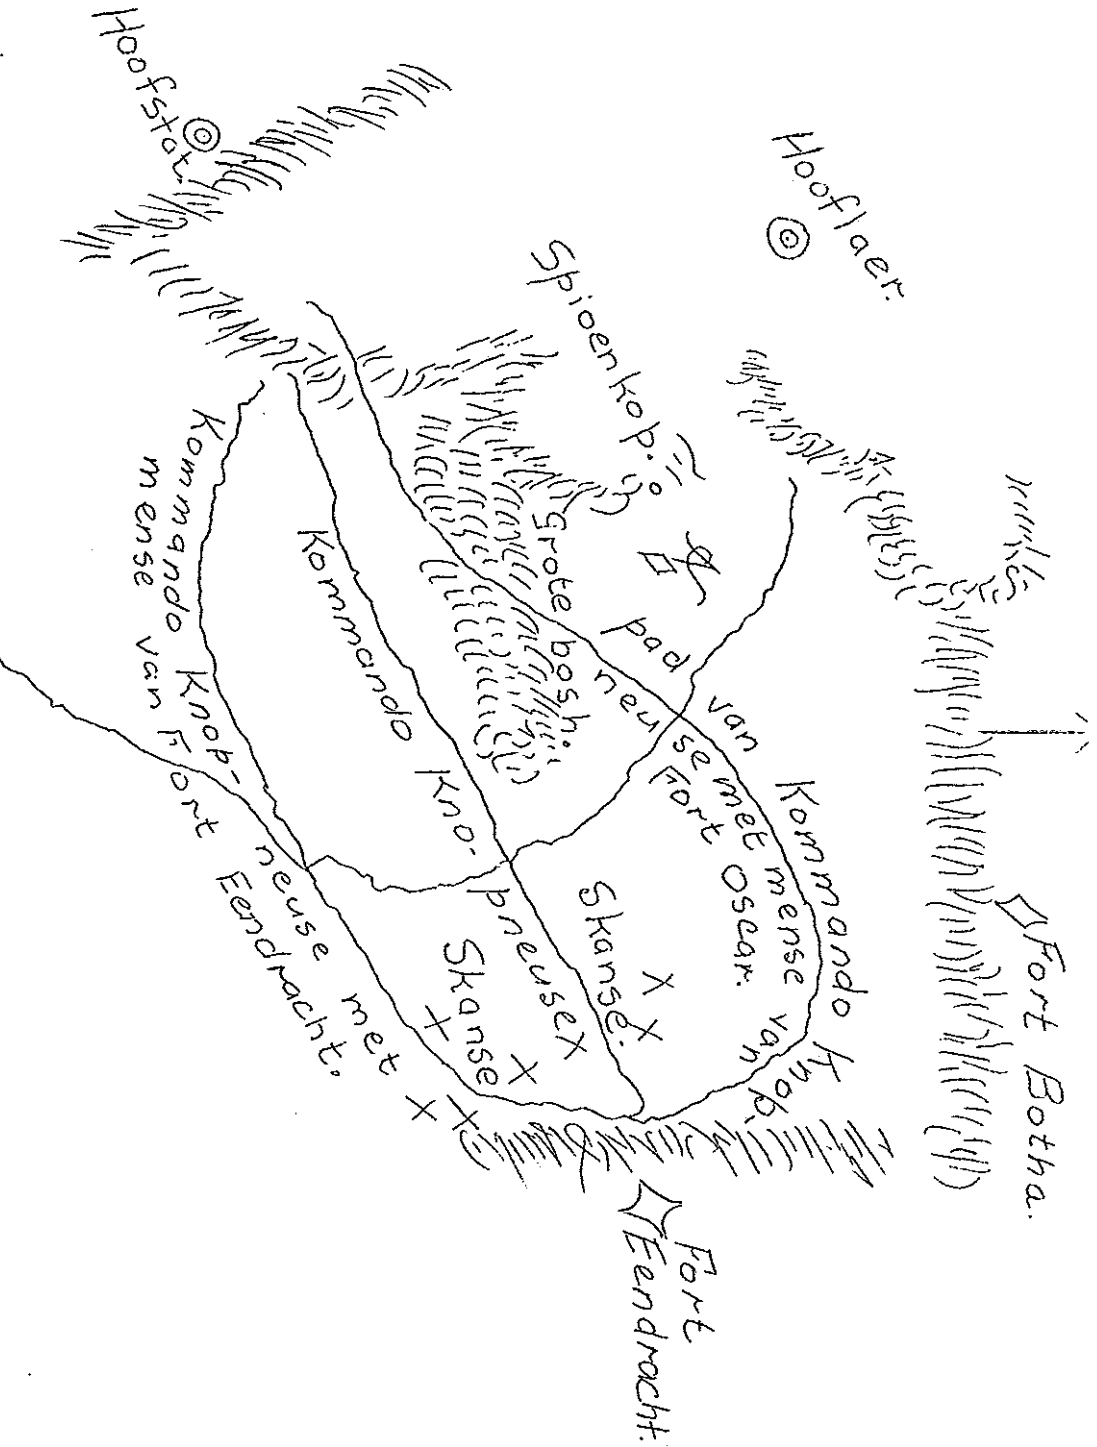 Hoofstat.
Hooflaer.
Spioenkop.
Fort Botha.
Grote bosh.
pad van Kommando Knop-
neuse met mense van
Fort Oscar.
Skanse.
Kommando Kno-pneuse
Skanse
Kommando Knop-neuse met
mense van Fort Eendracht.
Fort
Eendracht.
X
X
X
X
X
X
X